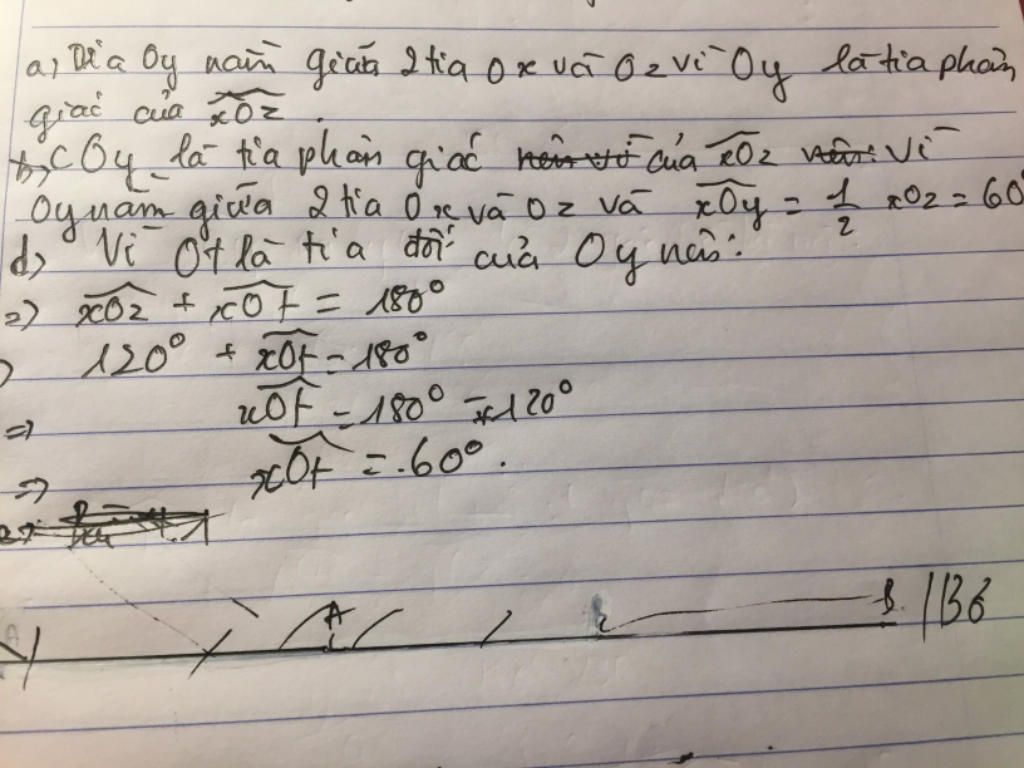 a, Tia Oy nằm giữa 2 tia Ox và Oz vì Oy là tia phân
giác của xOz.
b, c Oy là tia phân giác của xOz vì
Oy nằm giữa 2 tia Ox và Oz và xOy = 1/2 xOz = 60°
d, Vì Ot là tia đối của Oy nên:
=> xOz + xOt = 180°
120° + xOt = 180°
=> xOt = 180° - 120°
=> xOt = 60°.
A